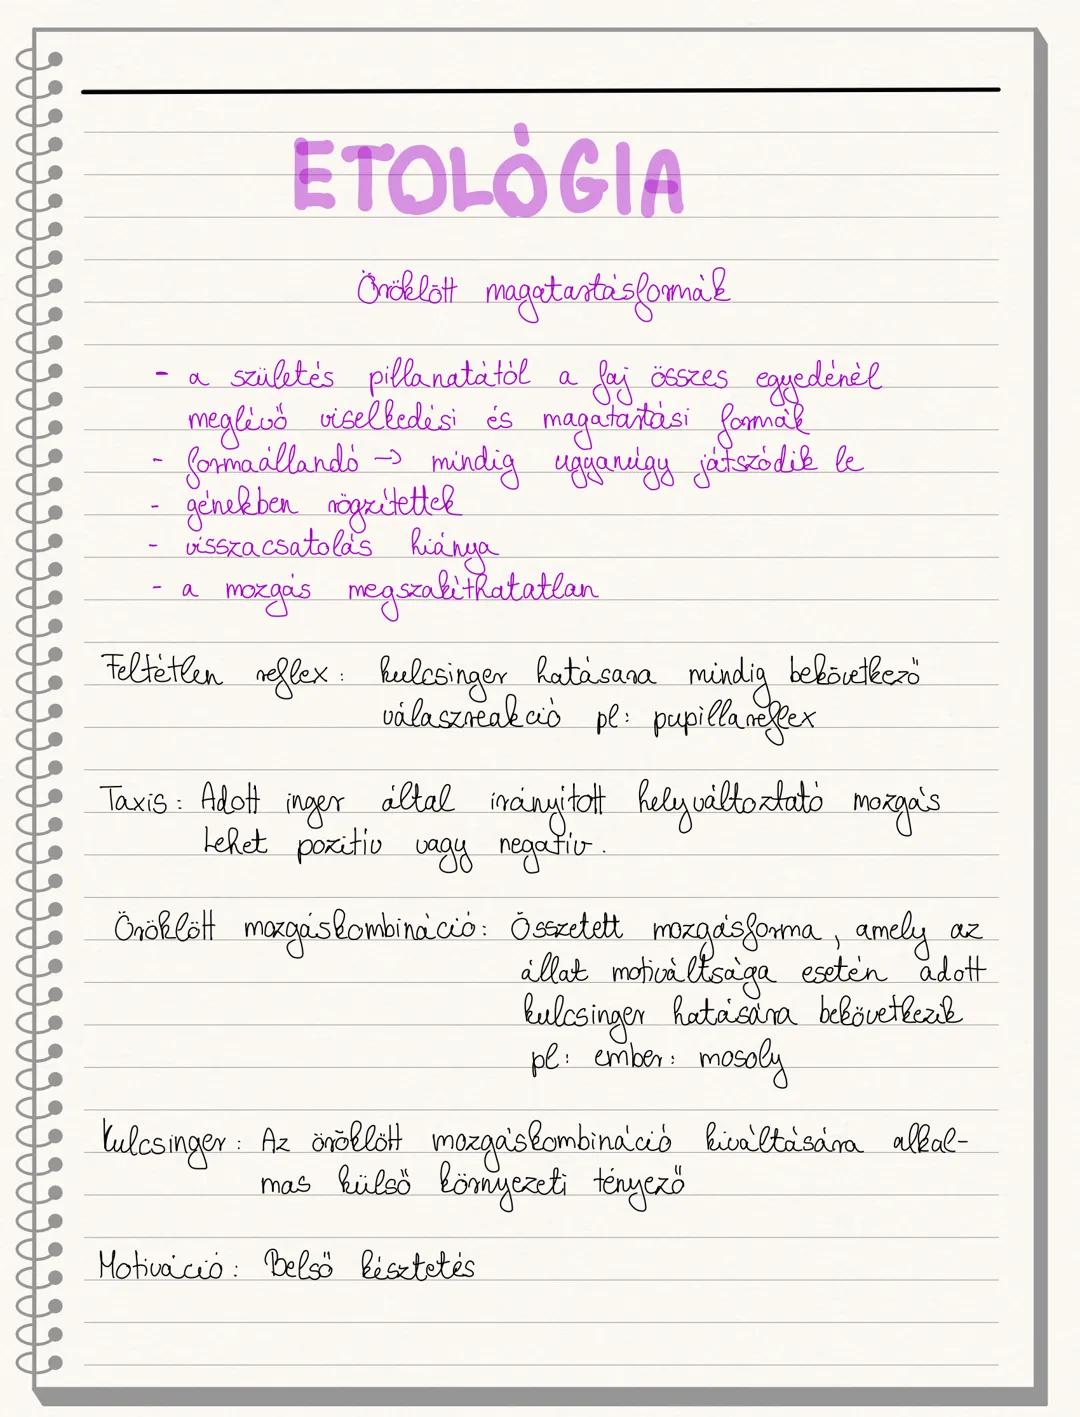 ETOLÓGIA
Öröklött magatartásformák
- a születés pillanatától a faj összes egyedénél
meglévő viselkedési és magatartási formák
- formaállandó → mindig ugyanúgy játszódik le
- génekben rögzítettek
- visszacsatolás hiánya
- a mozgás megszakíthatatlan
Feltétlen reflex: kulcsinger hatására mindig bekövetkező
válaszreakció pl: pupillareflex
Taxis: Adott inger által irányított helyváltoztató mozgás
Lehet pozitív vagy negatív.
Öröklött mozgáskombináció: Összetett mozgásforma, amely az
állat motiváltsága esetén adott
kulcsinger hatására bekövetkezik
pl: ember: mosoly
Kulcsinger: Az öröklött mozgáskombináció kiváltására alkal-
mas külső környezeti tényező
Motiváció: Belső késztetés